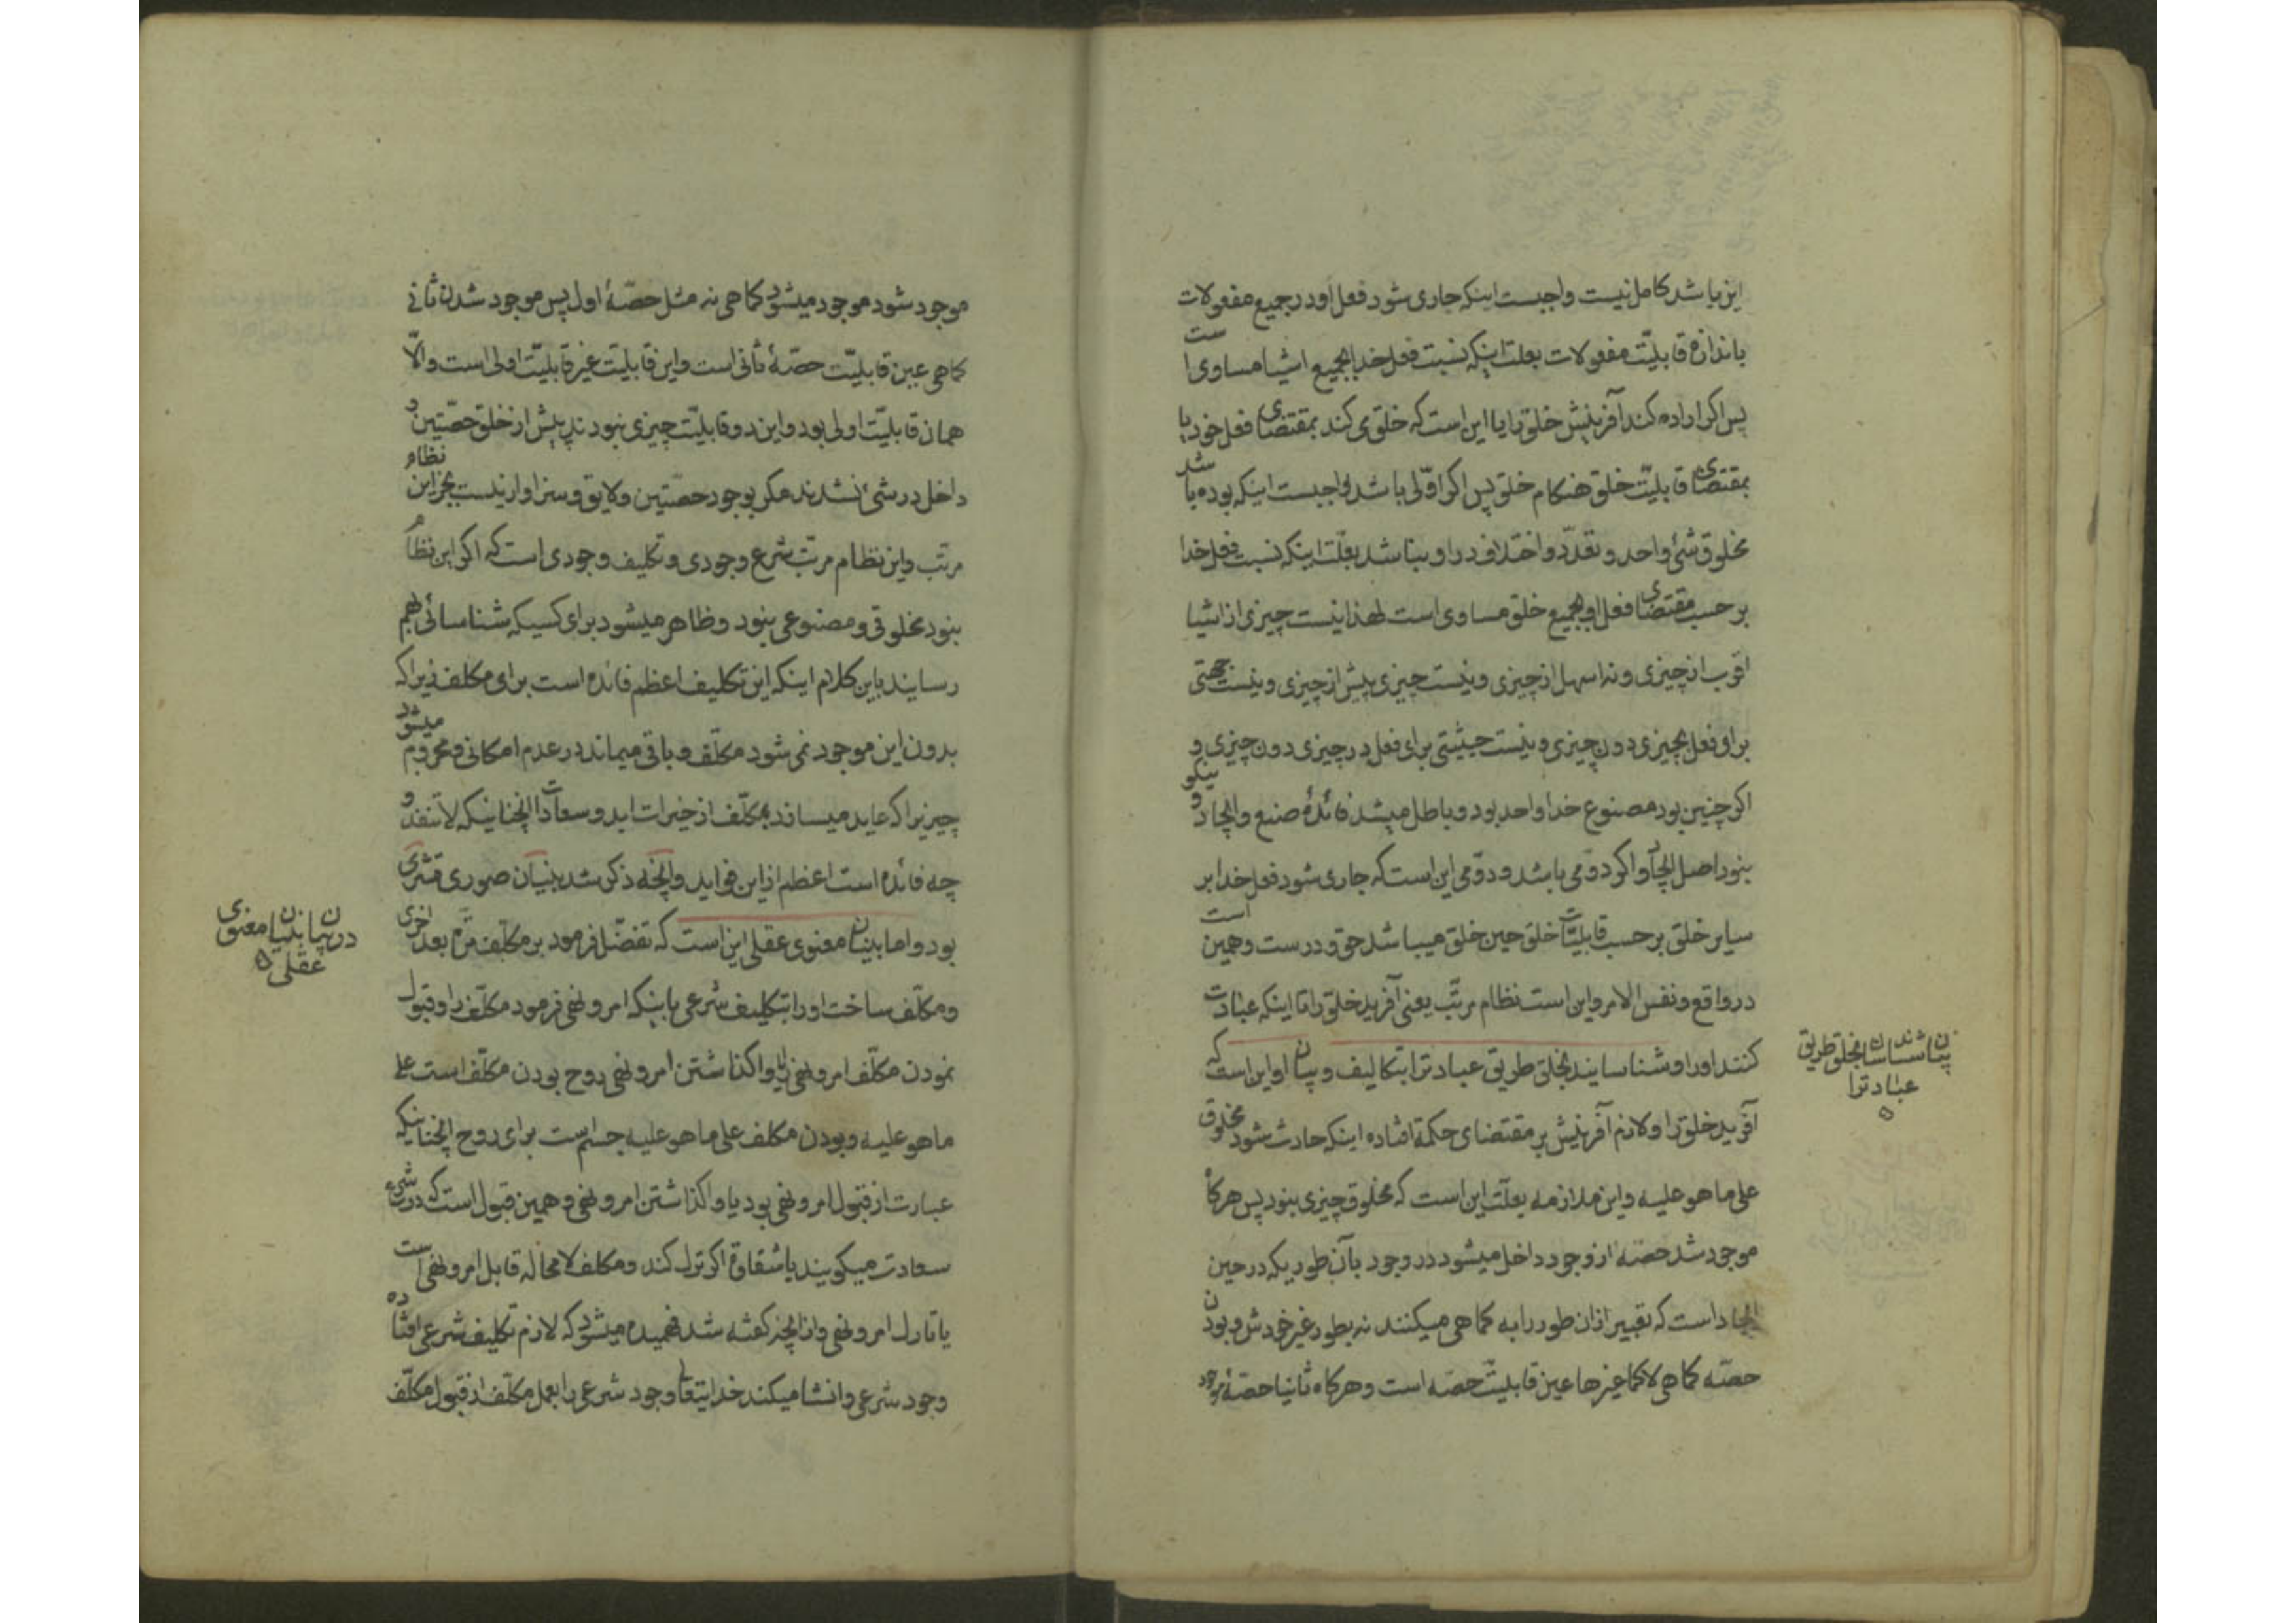 این باشد کامل نیست واجبست اینکه جاری شود فعل او در جمیع مفعولات
باندازه قابلیّت مفعولات بعلت اینکه نسبت فعل خدا بجمیع اشیا مساوی است
پس اکر اراده کند آفرینش خلق را یا این است که خلق می کند بمقتضای فعل خود یا
بمقتضای قابلیّت خلق هنکام خلق پس اکر اوّلی باشد واجبست اینکه بوده باشد
مخلوق شئ واحد و تعدّد و اختلاف در او نباشد بعلّت اینکه نسبت فعل خدا
بر حسب مقتضای فعل او بجمیع خلق مساوی است لهذا نیست چیزی از اشیا
اقرب از چیزی و نه اسهل از چیزی و نیست چیزی پیش از چیزی و نیست جهتی
برای فعل بچیزی دون چیزی و نیست حیثیتی برای فعل در چیزی دون چیزی و
اکر چنین بود مصنوع خدا واحد بود و باطل میشد فائدهٔ صنع و ایجاد و نیکو
نبود اصل ایجاد و اکر دوّمی باشد و دوّمی این است که جاری شود فعل خدا بر
سایر خلق بر حسب قابلیّات خلق حین خلق میباشد حق و درست و همین است
در واقع و نفس الامر و این است نظام مرتّب یعنی آفرید خلق را تا اینکه عبادت
کنند او را و شناسانید بخلق طریق عبادترا بتکالیف و بیان او این است که
آفرید خلق را و لازم آفرینش بر مقتضای حکمة افتاده اینکه حادث شود مخلوق
علی ما هو علیه و این ملازمه بعلّت این است که مخلوق چیزی نبود پس هرکاه
موجود شد حصّه از وجود داخل میشود در وجود بآن طوریکه در حین
ایجاد است که تعبیر از ان طور را به کما هی میکنند نه بطور غیر خودش و بودن
حصّه کما هی لا کما غیرها عین قابلیّت حصّه است و هرکاه ثانیا حصّهٔ موجود
بیان شناساندن بخلق طریق
عبادترا
موجود شود موجود میشود کما هی نه مثل حصّهٔ اول پس موجود شدن ثانی
کما هی عین قابلیّت حصّهٔ ثانی است و این قابلیّت غیر قابلیّت اولی است و الّا
همان قابلیّت اولی بود و این دو قابلیّت چیزی نبودند پیش از خلق حصّتین و
داخل در شئ نشدند مکر بوجود حصّتین و لایق و سزاوار نیست بجز این نظام
مرتّب و این نظام مرتّب شرع وجودی و تکلیف وجودی است که اکر این نظام
نبود مخلوقی و مصنوعی نبود و ظاهر میشود برای کسیکه شناسائی بهم
رسانید باین کلام اینکه این تکلیف اعظم فائده است برای مکلف زیرا که
بدون این موجود نمی شود مکلّف و باقی میماند در عدم امکانی و محروم میشود
چیزیرا که عاید میسازد بمکلّف از خیرات ابد و سعادات انچنانیکه لا تنفد و
چه فائده است اعظم از این فواید و انچه ذکر شد بنیان صوری قشری
بود و اما بنیان معنوی عقلی این است که تفضّل فرمود بر مکلّف مرّه بعد اخری
و مکلّف ساخت او را بتکلیف شرعی باینکه امر و نهی فرمود مکلّف را و قبول
نمودن مکلّف امر و نهی را یا واکذاشتن امر و نهی روح بودن مکلّف است علی
ما هو علیه و بودن مکلف علی ما هو علیه جسم است برای روح انچنانیکه
عبارت از قبول امر و نهی بود یا واکذاشتن امر و نهی و همین قبول است که در شرع
سعادت میکویند یا شقاوة اکر ترک کند و مکلف لا محاله قابل امر و نهی است
یا تارک امر و نهی و از انچه کفته شد فهمیده میشود که لازم تکلیف شرعی افتاده
وجود شرعی و انشا میکند خدایتعالی وجود شرعی را بعمل مکلّف از قبول مکلّف
در بیان بنیان معنوی
عقلی